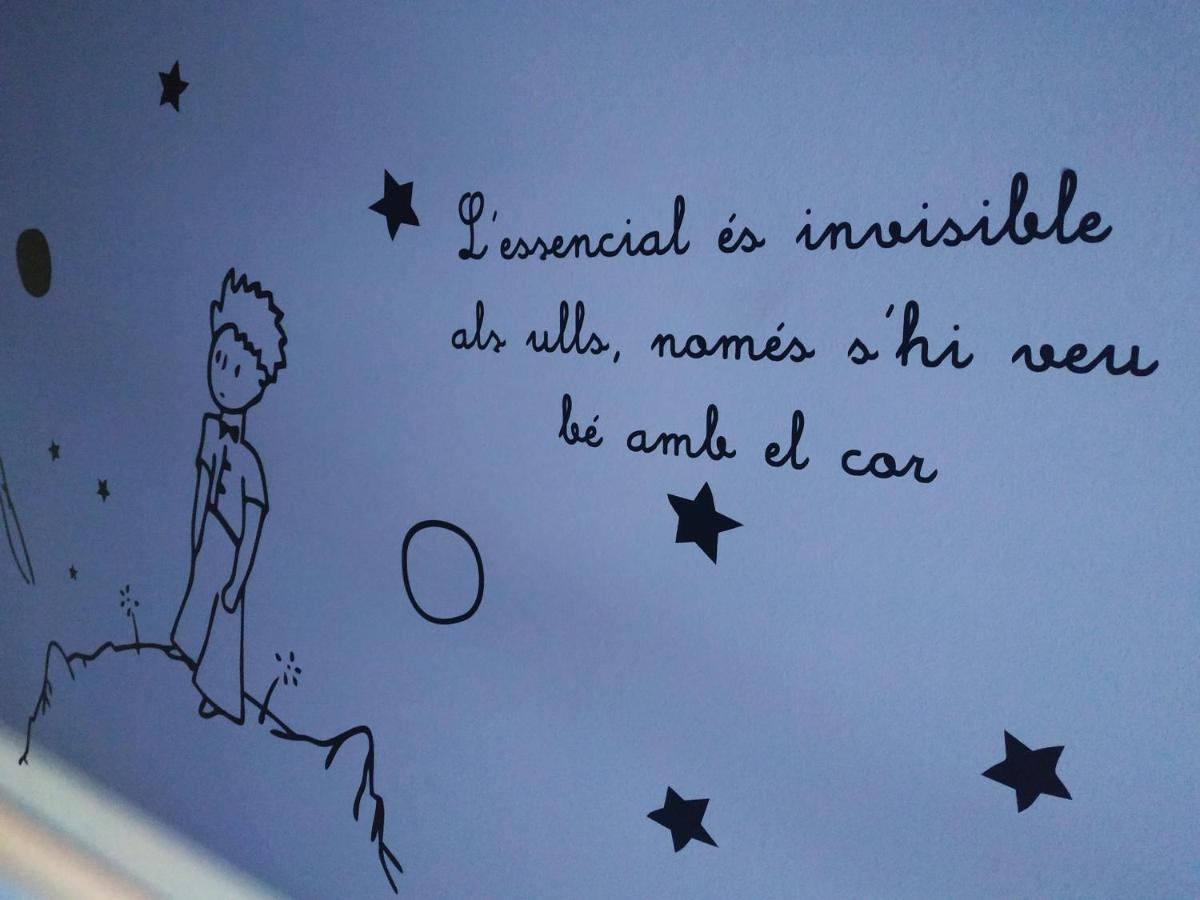 L'essencial és invisible
als ulls, només s'hi veu
bé amb el cor